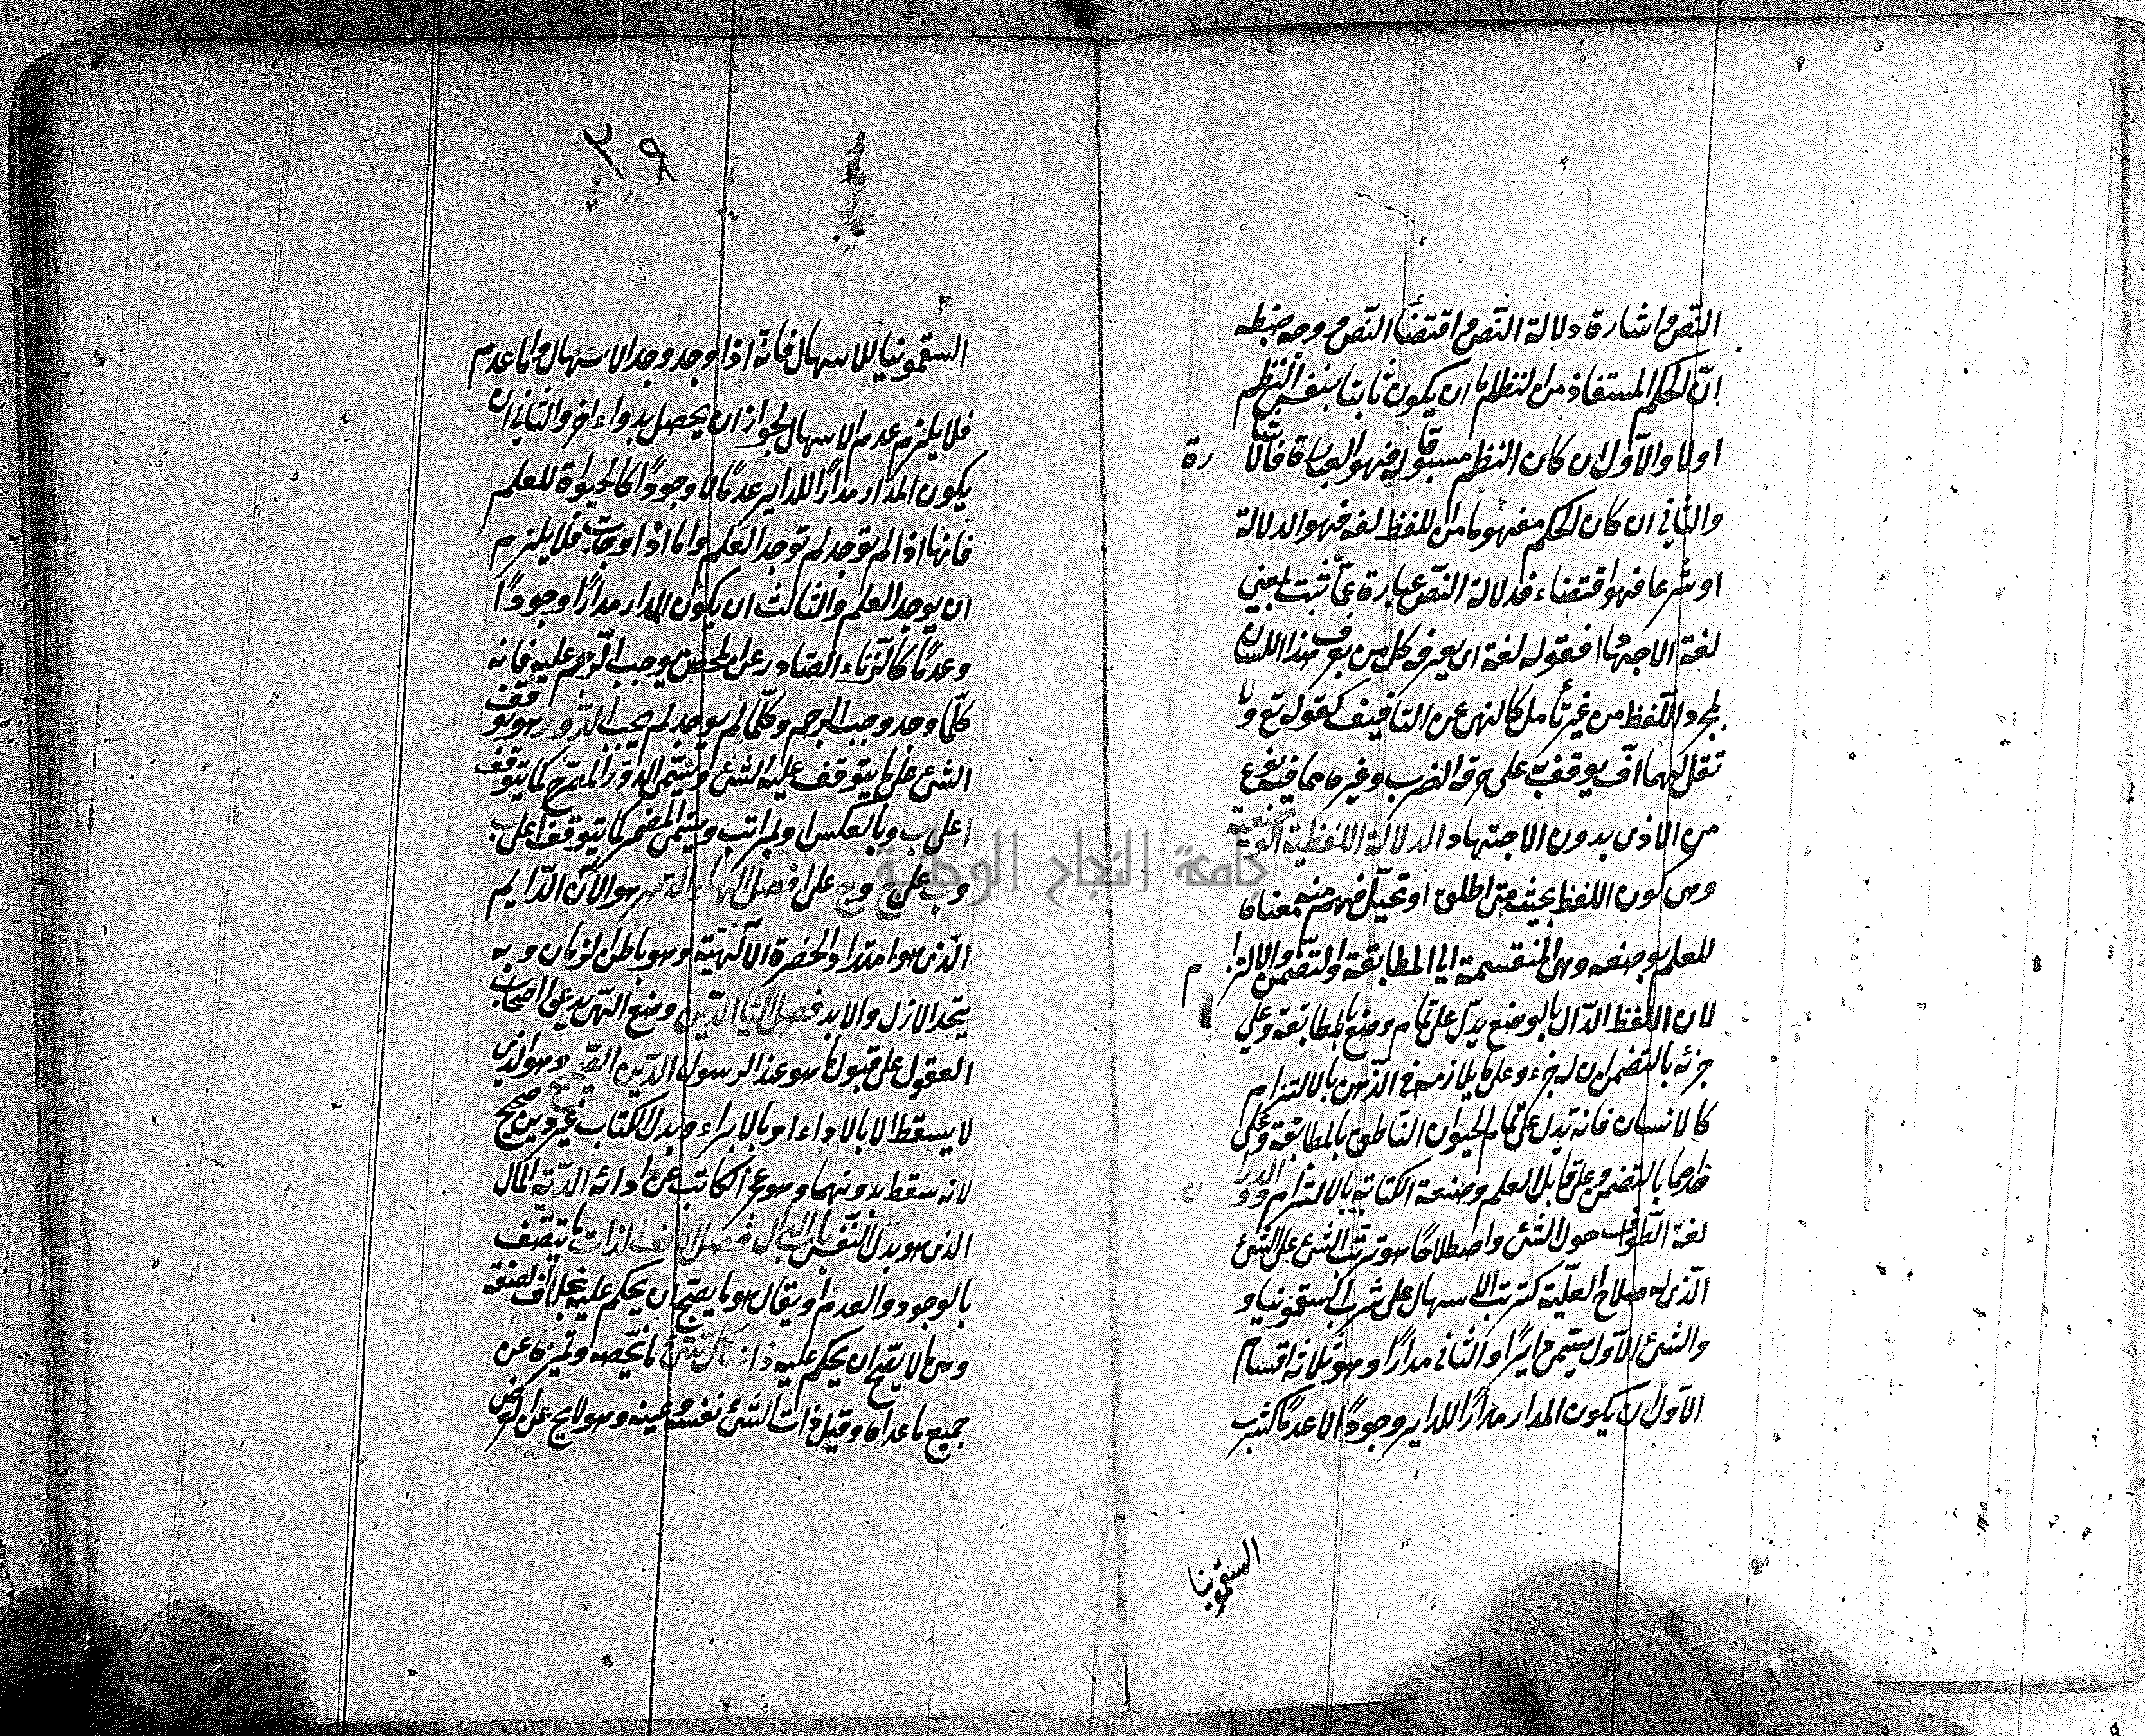 النّص واشارة دلالة النّص واقتضأ النّص ووجه ضبطه
انّ الحكم المستفاد من النظم اما ان يكون ثابتا بنفس النّظم
اولا والاّول ان كان النظم مسوقا له فهو العبارة فالاشا رة
والثانى ان كان الحكم مفهوما من اللفظ لغه فهو الدلالة
او شرعا فهو اقتضاء فدلالة النّص عبارة عمّا ثبت بمعنى
لغة الاجتهادا فقوله لغة اى يعرفه كل من يعرف هذا اللسان
بمجرد اللّفظ من غير تأمل كالنهى عن التافيف كقوله تع ولا
تقل لهما افّ يوقف به على حرمة الضرب وغيره مما فيه نوع
من الاذى بدون الاجتهاد الدلالة اللفظية الوضعية
وهى كون اللفظ بحيث متى اطلق او تخيّل فهم منه معناه
للعلم بوضعه وهى المنقسمة الى المطابقة والتضّمن والالتزا م
لان اللفظ الدّال بالوضع يدلّ على تمام ما وضع له بالمطابقة وعلى
جزئه بالتضمن ان له جزء وعلى ما يلازمه فى الذّهن بالالتزام
كالانسان فانه يدل على تمام الحيوان النّاطق بالمطابقة وعلى
احدهما بالتضمن وعلى قابل العلم وصنعة الكتابة بالالتزام الدورا ن
لغة الطّواف حول الشئ واصطلاحًا هو ترتب الشئ على الشئ
الّذى له صلاح العلّية كترتب الاسهال على شرب السقمونيا و
والشئ الاّول يسمّى دايرًا والثانى مدارًا وهو ثلاثة اقسام
الاّول ان يكون المدار مدارًا للداير وجودًا لا عدمًا كشرب
السقمونيا
٢٩
السقمونيا للاسهال فانّه اذا وجد وجد الاسهال واما عدم
فلا يلزم عدم الاسهال لجواز ان يحصل بدواء اخر والثانى ان
يكون المدار مدارًا للداير عدمًا لا وجودًا كالحيوة للعلم
فانها اذا لم توجد لم توجد العلم واما اذا وجدت فلا يلزم
ان يوجد العلم والثالث ان يكون المدار مدارًا وجودًا
وعدمًا كالزناء الصادر عن المحصن لوجوب الرّجم عليه فانه
كلّما وجد وجب الرجم وكلّما لم يوجد لم يجب الدّور هو توقّف
الشئ على ما يتوقف عليه الشئ ويسّمى الدّور المصّرح كما يتوقف
ا على ب وبالعكس او بمراتب ويسّمى المضمر كما يتوقف ا على ب
وب على ج وج على ا فصل الهاء الدّهر هو الآن الدّايم
الّذى هو امتداد الحضرة الآلهيّة وهو باطن الزمان وبه
يتحد الازل والابد فصل اليا الدّين وضع الهّى يدعو اصحاب
العقول على قبول ما هو عند الرسول الدّين الصّحيح هو الذى
لا يسقط الا بالاداء او بالابراء وبدل الكتاب غير دين صحيح
لانه سقط بدونهما وهو عجز المكاتب عن ادائه الدّية المال
الذى هو بدل النّفس الذات ما يتصّف
بالوجود والعدم او يقال هو ما يصّح ان يحكم عليه بخلاف الصفة
وهى ما لا يصّح ان يحكم عليه ذات كلّ شئ ما يخّصه ويميزه عن
جميع ما عداه وقيل ذات الشئ نفسه وعينه وهو لا يخ عن العرض